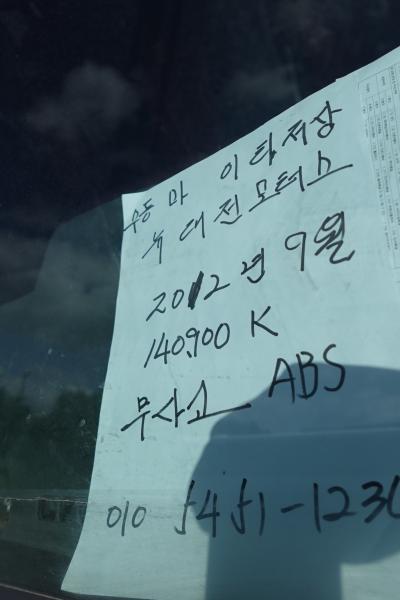 이탑저상
대전모터스
2012년 9월
140,900 K
무사고 ABS
010 5451-123